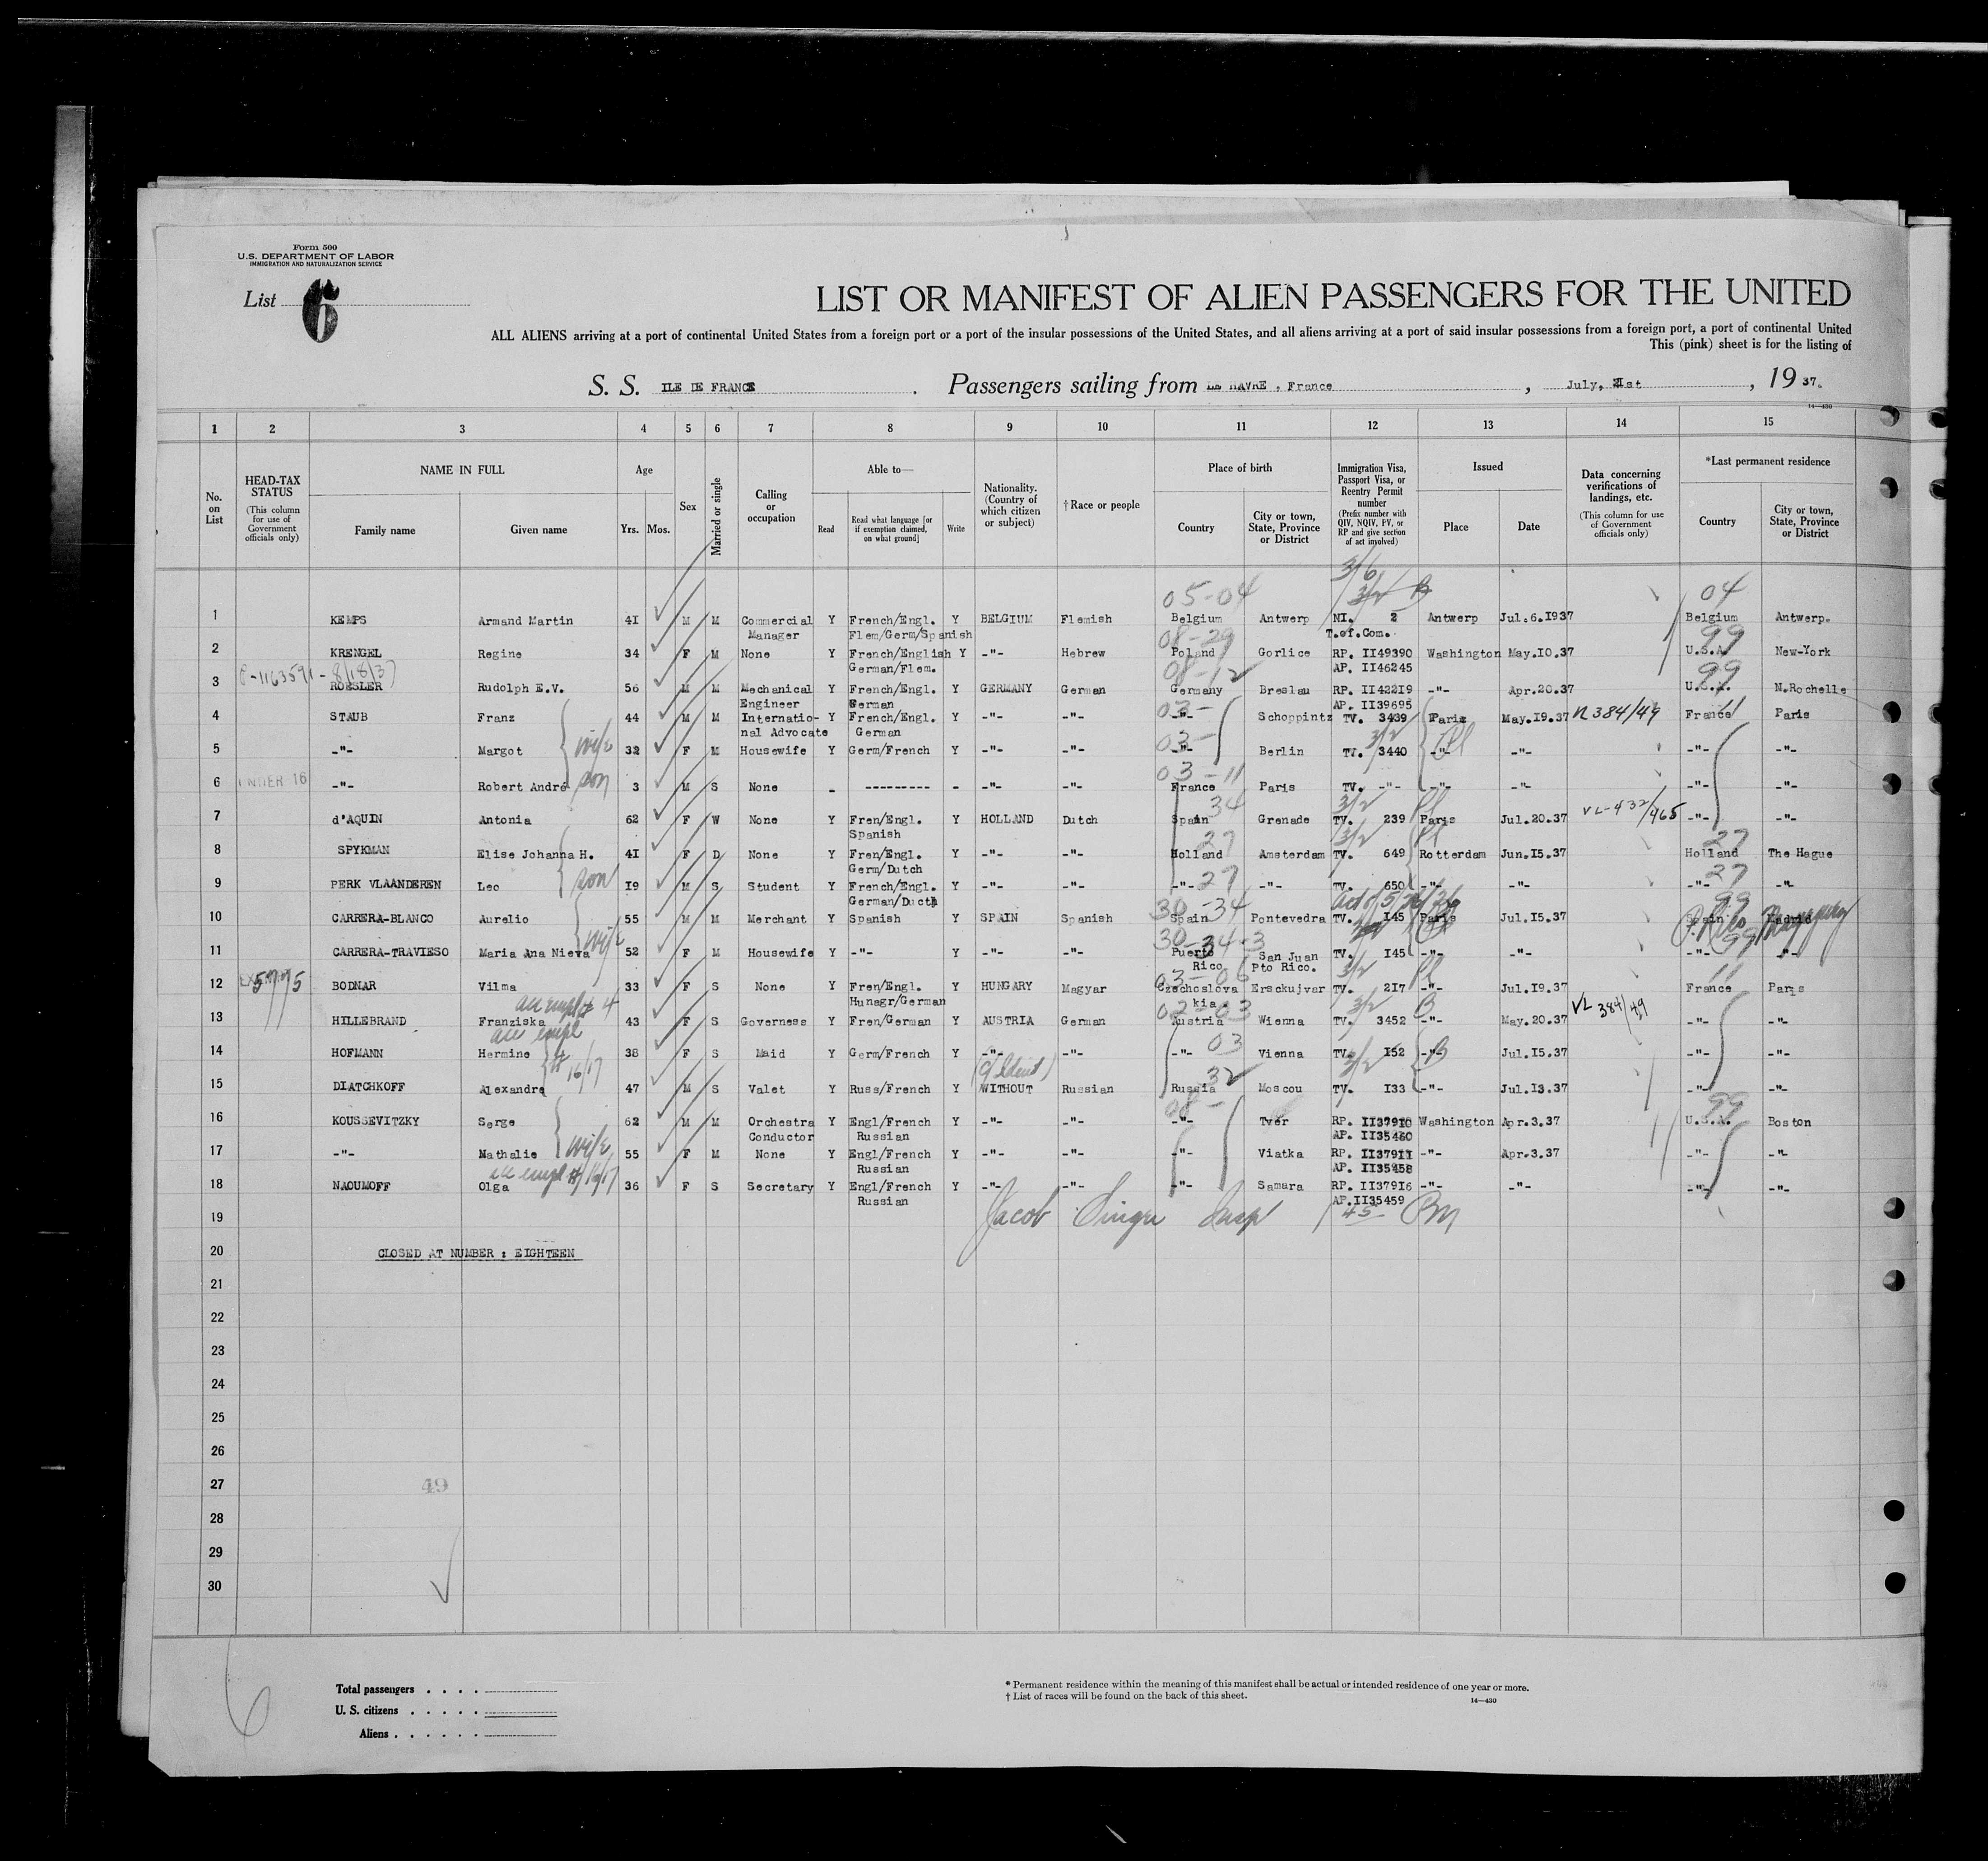 Form 500
U.S. DEPARTMENT OF LABOR
IMMIGRATION AND NATURALIZATION SERVICE
List 6
LIST OR MANIFEST OF ALIEN PASSENGERS FOR THE UNITED
ALL ALIENS arriving at a port of continental United States from a foreign port or a port of the insular possessions of the United States, and all aliens arriving at a port of said insular possessions from a foreign port, a port of continental United
This (pink) sheet is for the listing of
S. S. ILE DE FRANCE . Passengers sailing from LE HAVRE . France , July, 21st , 19 37.
14—430
1 2 3 4 5 6 7 8 9 10 11 12 13 14 15
No. on List
HEAD-TAX STATUS (This column for use of Government officials only)
NAME IN FULL
Family name Given name
Age
Yrs. Mos.
Sex
Married or single
Calling or occupation
Able to—
Read Read what language [or if exemption claimed, on what ground] Write
Nationality. (Country of which citizen or subject)
† Race or people
Place of birth
Country City or town, State, Province or District
Immigration Visa, Passport Visa, or Reentry Permit number (Prefix number with QIV, NQIV, PV, or RP and give section of act involved)
Issued
Place Date
Data concerning verifications of landings, etc. (This column for use of Government officials only)
*Last permanent residence
Country City or town, State, Province or District
3/6
05-04 3/2 B 04
1 KEMPS Armand Martin 41 M M Commercial Y French/Engl. Y BELGIUM Flemish Belgium Antwerp NI. 2 Antwerp Jul.6.1937 Belgium Antwerp.
Manager Flem/Germ/Spanish T.of.Com.
08-29 99
2 KRENGEL Regine 34 F M None Y French/English Y -"- Hebrew Poland Gorlice RP. II49390 Washington May.10.37 U.S.A. New-York
German/Flem. AP. II46245
8-1163591 - 8/18/37 08-12 99
3 ROESLER Rudolph E.V. 56 M M Mechanical Y French/Engl. Y GERMANY German Germany Breslau RP. II42219 -"- Apr.20.37 U.S.A. N.Rochelle
Engineer German AP. II39695
03- 11
4 STAUB Franz 44 M M Internatio- Y French/Engl. Y -"- -"- -"- Schoppintz TV. 3439 Paris May.19.37 VL 384/49 France Paris
nal Advocate German
wife 03- 3/2
5 -"- Margot 32 F M Housewife Y Germ/French Y -"- -"- -"- Berlin TV. 3440 -"- -"- -"- -"-
son 03-11
6 UNDER 16 -"- Robert André 3 M S None - --------- - -"- -"- France Paris TV. -"- -"- -"- -"- -"-
34 3/2
7 d'AQUIN Antonia 62 F W None Y Fren/Engl. Y HOLLAND Dutch Spain Grenade TV. 239 Paris Jul.20.37 VL-432/465 -"- -"-
Spanish
27 3/2 27
8 SPYKMAN Elise Johanna H. 41 F D None Y Fren/Engl. Y -"- -"- Holland Amsterdam TV. 649 Rotterdam Jun.15.37 Holland The Hague
Germ/Dutch
son 27 27
9 PERK VLAANDEREN Leo 19 M S Student Y French/Engl. Y -"- -"- -"- -"- TV. 650 -"- -"- -"- -"-
German/Dutch
30-34 Act of 5/26/26 99
10 CARRERA-BLANCO Aurelio 55 M M Merchant Y Spanish Y SPAIN Spanish Spain Pontevedra TV. 145 Paris Jul.15.37 Spain Madrid
P. Rico Mayaguez
wife 30-34-3 99
11 CARRERA-TRAVIESO Maria Ana Nieva 52 F M Housewife Y -"- Y -"- -"- Puerto San Juan TV. 145 -"- -"- -"- -"-
Rico Pto Rico.
03-06 3/2 11
12 5775 BODNAR Vilma 33 F S None Y Fren/Engl. Y HUNGARY Magyar Czechoslova Ersekujvar TV. 217 -"- Jul.19.37 France Paris
Hunagr/German kia
acc empl # 4 02-03 3/2 B
13 HILLEBRAND Franziska 43 F S Governess Y Fren/German Y AUSTRIA German Austria Wienna TV. 3452 -"- May.20.37 VL 384/49 -"- -"-
acc empl 03
14 HOFMANN Hermine 38 F S Maid Y Germ/French Y -"- -"- -"- Vienna TV. 152 -"- Jul.15.37 -"- -"-
# 16/17 32 3/2 B
15 DIATCHKOFF Alexandre 47 M S Valet Y Russ/French Y WITHOUT Russian Russia Moscou TV. 133 -"- Jul.13.37 -"- -"-
08- 99
16 KOUSSEVITZKY Serge 62 M M Orchestra Y Engl/French Y -"- -"- -"- Tver RP. II37910 Washington Apr.3.37 U.S.A. Boston
Conductor Russian AP. II35460
wife
17 -"- Nathalie 55 F M None Y Engl/French Y -"- -"- -"- Viatka RP. II37911 -"- Apr.3.37 -"- -"-
Russian AP. II35458
acc empl # 16/17
18 NAOUMOFF Olga 36 F S Secretary Y Engl/French Y -"- -"- -"- Samara RP. II37916 -"- -"- -"- -"-
Russian AP.II35459
19 Jacob Singer Insp 45
20 CLOSED AT NUMBER : EIGHTEEN
21
22
23
24
25
26
27 49
28
29
30
6
Total passengers
U. S. citizens
Aliens
* Permanent residence within the meaning of this manifest shall be actual or intended residence of one year or more.
† List of races will be found on the back of this sheet.
14—430